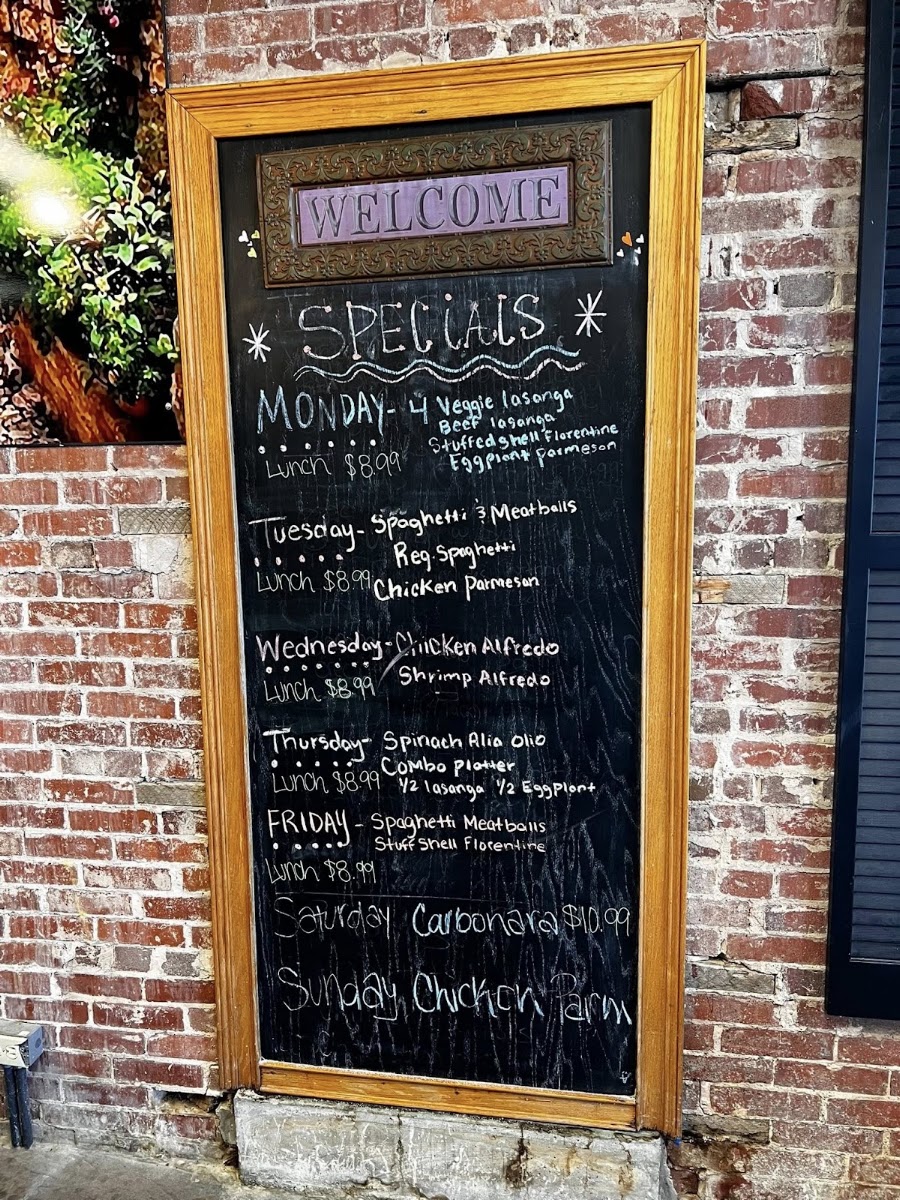 WELCOME
SPECIALS
MONDAY - 4 Veggie lasanga
Beef lasanga
Stuffed shell florentine
Lunch $8.99 Eggplant parmeson
Tuesday - Spaghetti & Meatballs
Reg. Spaghetti
Lunch $8.99 Chicken Parmesan
Wednesday - Chicken Alfredo
Lunch $8.99 Shrimp Alfredo
Thursday - Spinach Alia olio
Combo platter
Lunch $8.99 1/2 lasanga 1/2 EggPlant
FRIDAY - Spaghetti Meatballs
Stuff Shell Florentine
Lunch $8.99
Saturday Carbonara $10.99
Sunday Chicken Parm